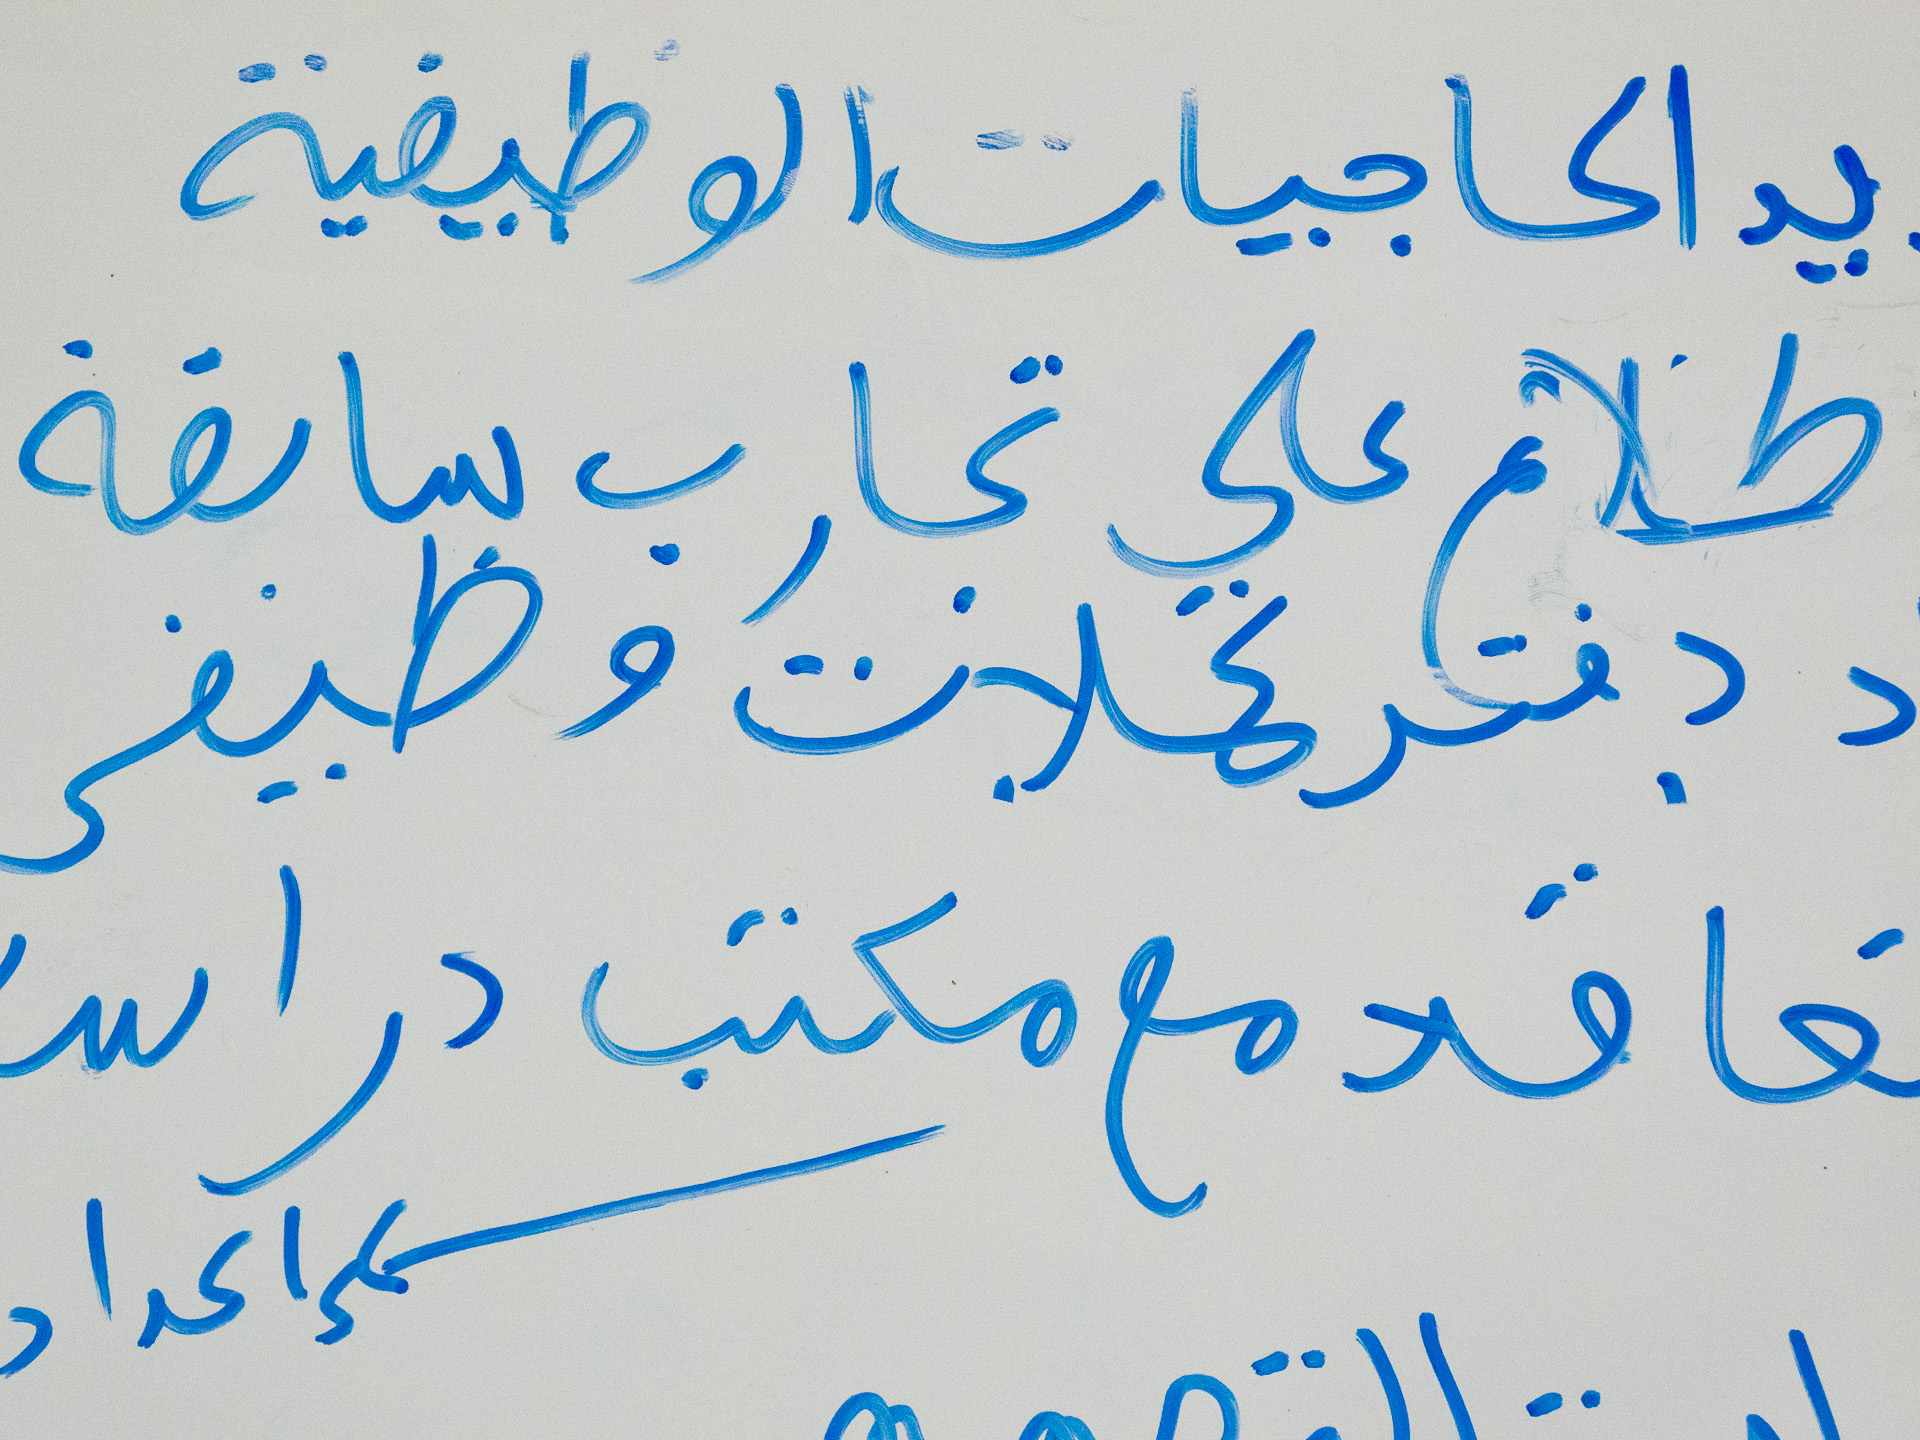 يد الحاجيات الوظيفية
طلاع على تجارب سابقة
د دفتر تحملات وظيفي
تعاقد مع مكتب دراسا
على إعداد
ات التصميم